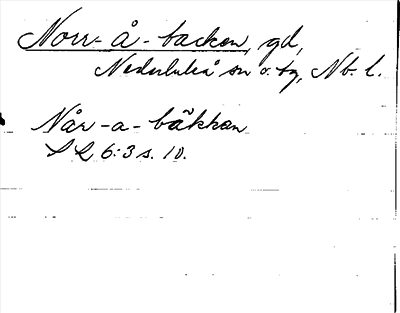 Norr-å-backen, gd,
Nederluleå sn o. tg, Nb. l.
Når-a-bäkkan
S L 6:3 s. 10.